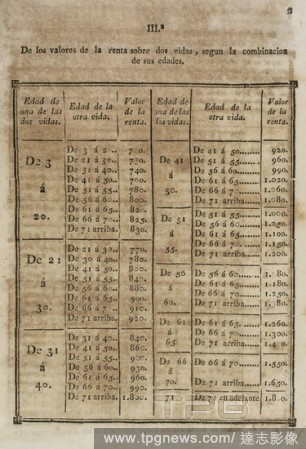 III.ª
De los valores de la renta sobre dos vidas, segun la combinacion
de sus edades.
Edad de una de las dos vidas. Edad de la otra vida. Valor de la renta. Edad de una de las dos vidas. Edad de la otra vida. Valor de la renta.
De 3 á 20.
De 3 á 20.. 720.
De 21 á 30.. 730.
De 31 á 40.. 740.
De 41 á 50.. 760.
De 51 á 55.. 780.
De 56 á 60.. 800.
De 61 á 65.. 820.
De 66 á 70.. 825.
De 71 arriba. 830.
De 21 á 30.
De 21 á 30.. 770.
De 30 á 40.. 780.
De 41 á 50.. 800.
De 51 á 55..
De 56 á 60.. 880.
De 61 á 65.. 900.
De 66 á 70.. 910.
De 71 arriba. 920.
De 31 á 40.
De 31 á 40.. 840.
De 41 á 50.. 860.
De 51 á 55.. 900.
De 56 á 60.. 930.
De 61 á 65.. 960.
De 66 á 70.. 990.
De 71 arriba.
De 41 á 50.
De 41 á 50.. 920.
De 51 á 55.. 960.
De 56 á 60.. 990.
De 61 á 65.. 1.020.
De 66 á 70.. 1.060.
De 71 arriba. 1.080.
De 51 á 55.
De 51 á 55.. 1.000.
De 56 á 60.. 1.050.
De 61 á 65.. 1.100.
De 66 á 70.. 1.150.
De 71 arriba. 1.200.
De 56 á 60.
De 56 á 60..
De 61 á 65.. 1.200.
De 66 á 70..
De 71 arriba.
De 61 á 65.
De 61 á 65.. 1.260.
De 66 á 70.. 1.300.
De 71 arriba.
De 66 á 70.
De 66 á 70.. 1.550.
De 71 arriba. 1.650.
71 De 71 en adelante
TPG
www.tpgnews.com/達志影像